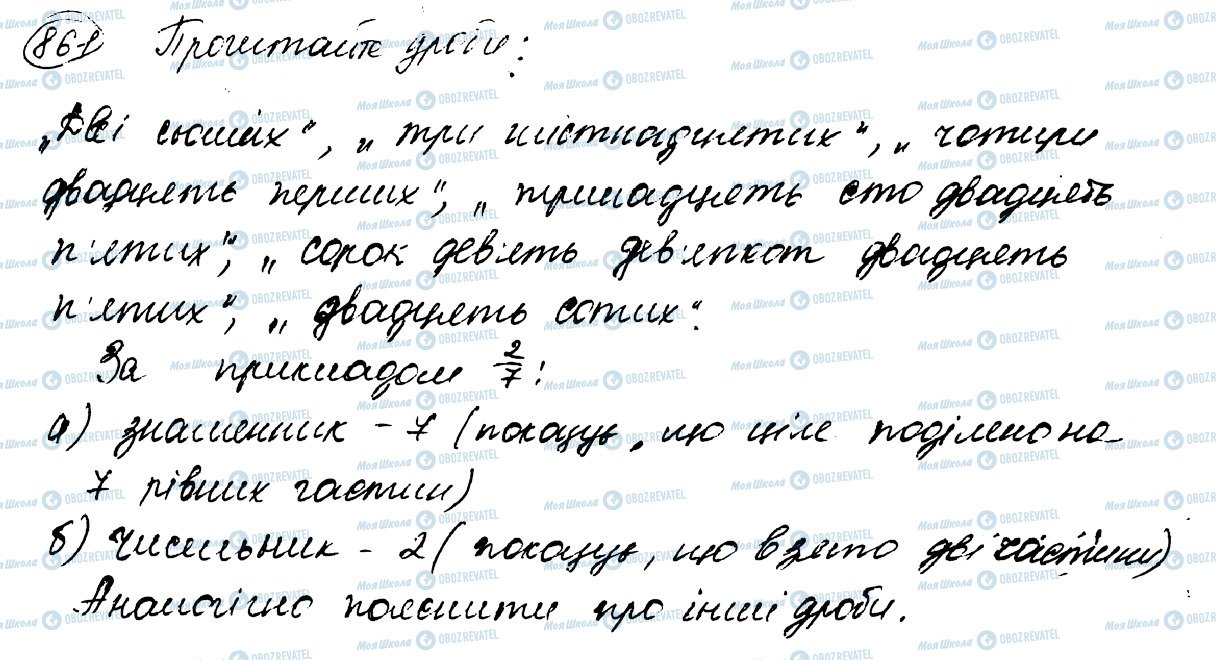 861 Прочитайте дроби:
„Дві сьомих", „три шістнадцятих", „чотири
двадцять перших", „тринадцять сто двадцять
п'ятих", „сорок дев'ять дев'ятсот двадцять
п'ятих", „двадцять сотих".
За прикладом 2/7:
а) знаменник - 7 (показує, що ціле поділено на
7 рівних частин)
б) чисельник - 2 (показує, що взято дві частини)
Аналогічно пояснити про інші дроби.